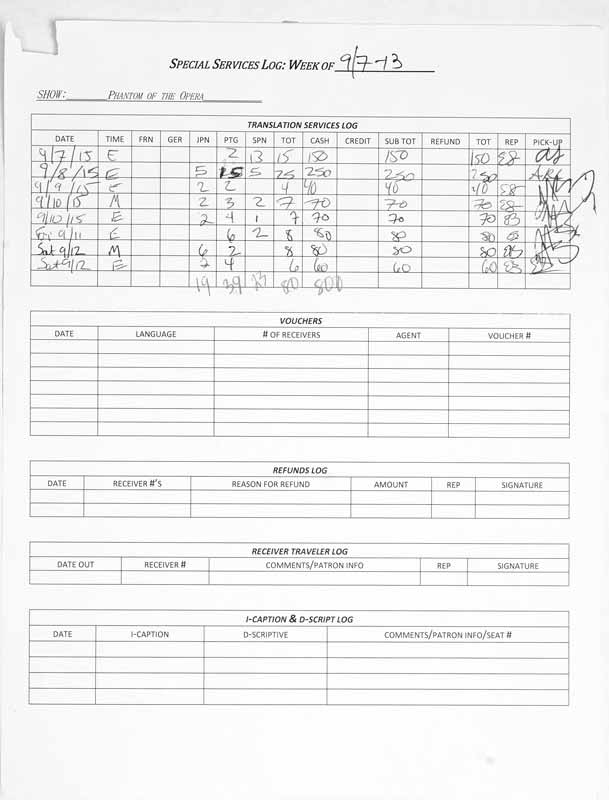 SPECIAL SERVICES LOG: WEEK OF 9/7-13
SHOW: PHANTOM OF THE OPERA
TRANSLATION SERVICES LOG
DATE TIME FRN GER JPN PTG SPN TOT CASH CREDIT SUB TOT REFUND TOT REP PICK-UP
9/7/15 E 2 13 15 150 150 150 EB
9/8/15 E 5 15 5 25 250 250 250
9/9/15 E 2 2 4 40 40 40 EB
9/10/15 M 2 3 2 7 70 70 70 EB
9/10/15 E 2 4 1 7 70 70 70 EB
Fri 9/11 E 6 2 8 80 80 80 EB
Sat 9/12 M 6 2 8 80 80 80 EB
Sat 9/12 E 2 4 6 60 60 60 EB
19 39 80 800
VOUCHERS
DATE LANGUAGE # OF RECEIVERS AGENT VOUCHER #
REFUNDS LOG
DATE RECEIVER #'S REASON FOR REFUND AMOUNT REP SIGNATURE
RECEIVER TRAVELER LOG
DATE OUT RECEIVER # COMMENTS/PATRON INFO REP SIGNATURE
I-CAPTION & D-SCRIPT LOG
DATE I-CAPTION D-SCRIPTIVE COMMENTS/PATRON INFO/SEAT #